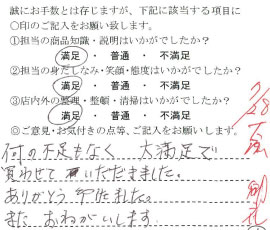 誠にお手数とは存じますが、下記に該当する項目に
○印のご記入をお願い致します。
①担当の商品知識・説明はいかがでしたか？
満足 ・ 普通 ・ 不満足
②担当の身だしなみ・笑顔・態度はいかがでしたか？
満足 ・ 普通 ・ 不満足
③店内外の整理・整頓・清掃はいかがでしたか？
満足 ・ 普通 ・ 不満足
◎ご意見・お気付きの点等、ご記入をお願いします。
何の不足もなく 大満足で
買わせていただきました。
ありがとう
また おねがいします.
7/28